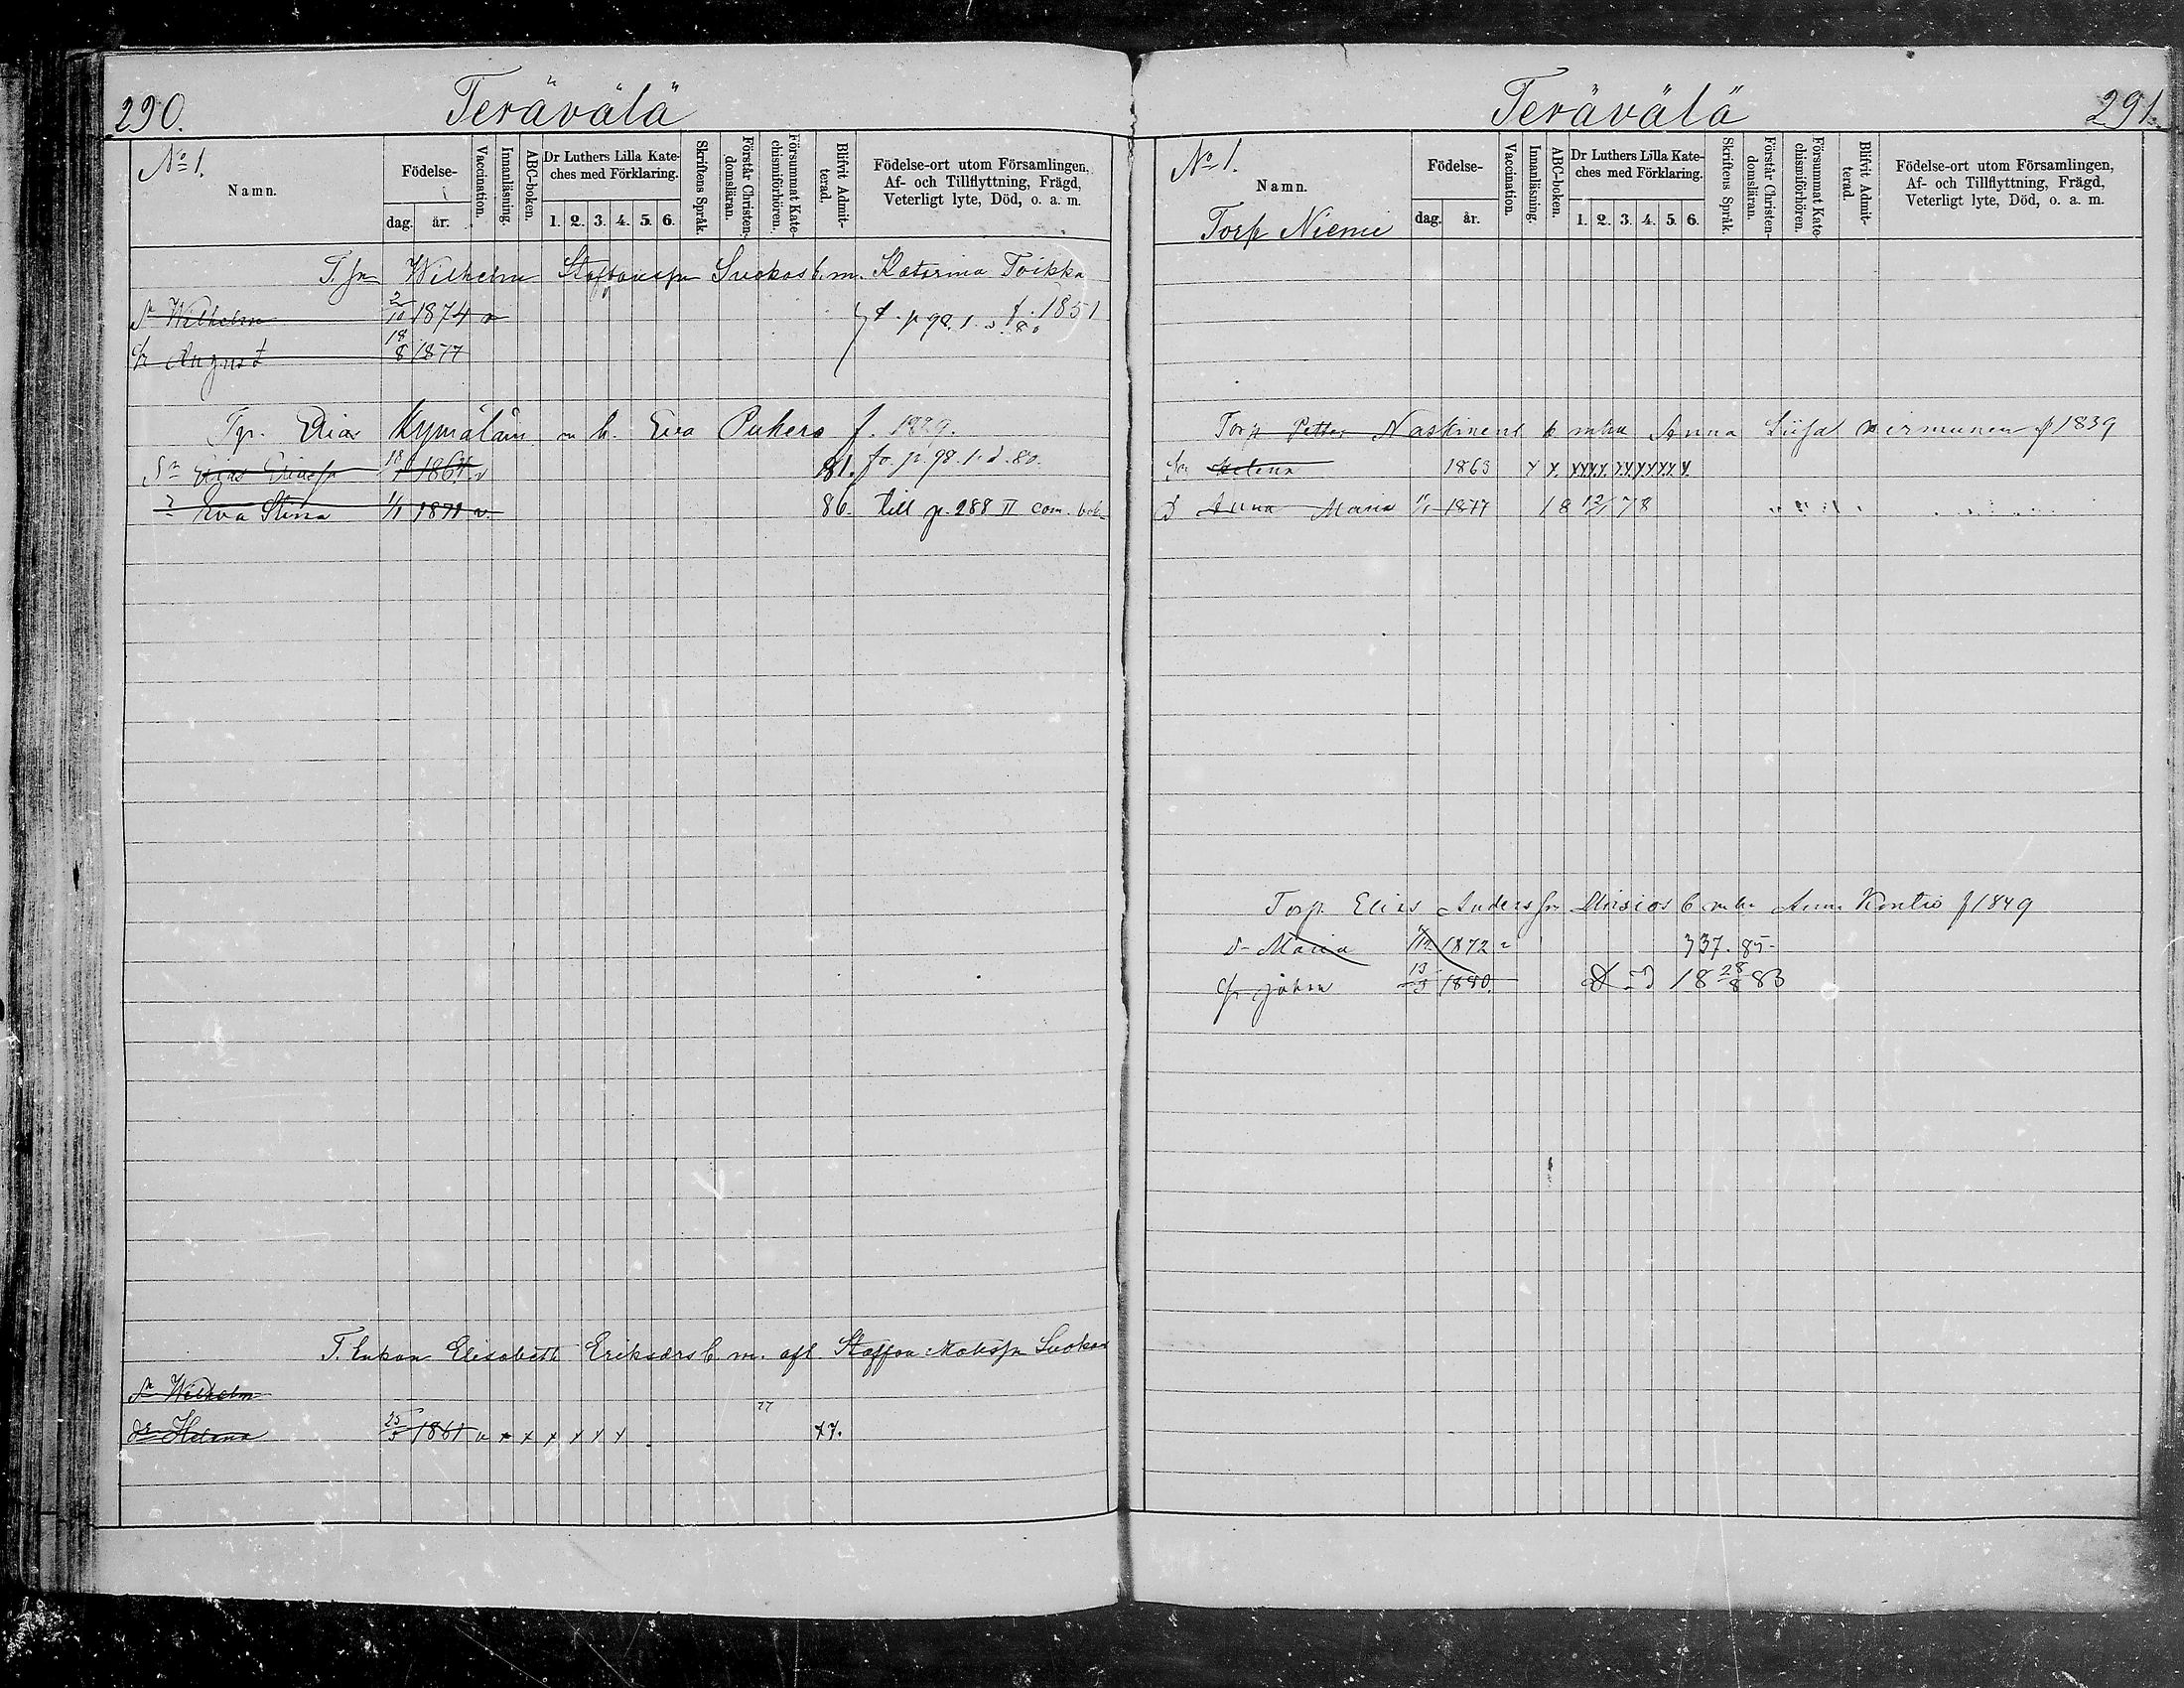 290. Terävälä
No 1.
Namn.
Födelse-
dag. år.
Vaccination.
Innanläsning.
ABC-boken.
Dr Luthers Lilla Kate-
ches med Förklaring.
1. 2. 3. 4. 5. 6.
Skriftens Språk.
Förstår Christen-
domsläran.
Försummat Kate-
chismiförhören.
Blifvit Admit-
terad.
Födelse-ort utom Församlingen,
Af- och Tillflyttning, Frägd,
Veterligt lyte, Död, o. a. m.
Wilhelm Suokas b. m. Katarina Toikka
Sn Wilhelm 2/10 1874 v f. 1851
August 18/8 1877
Tp. Elias Kymäläin m h. Eva Pukero f. 1829.
Sn Elias Eliasfn 1861 v 81. fo. p. 98. 1. d. 80.
Eva Stina 1/1 1871 v. 86. till p. 288 II com. bok
T. Enkan Elisabeth Eriksdr b. m. afl. Staffan Matsfn Suokas
Sn Wilhelm
dr Helena 25/5 1861 v x x x x x x 77.
Terävälä 291.
No 1.
Namn.
Torp Niemi
Födelse-
dag. år.
Vaccination.
Innanläsning.
ABC-boken.
Dr Luthers Lilla Kate-
ches med Förklaring.
1. 2. 3. 4. 5. 6.
Skriftens Språk.
Förstår Christen-
domsläran.
Försummat Kate-
chismiförhören.
Blifvit Admit-
terad.
Födelse-ort utom Församlingen,
Af- och Tillflyttning, Frägd,
Veterligt lyte, Död, o. a. m.
Torp Petter Naskinens b mhu Anna Liisa f 1839
Helena 1863 x x. xxxx. xx xxxx x.
D Anna Maria 1877 18 12/1 78
Torp. Elias Andersfn b mhu Anna Kontio f 1849
d- Maria 1872 337. 85-
Johan 13/3 1880. 18 28/8 83